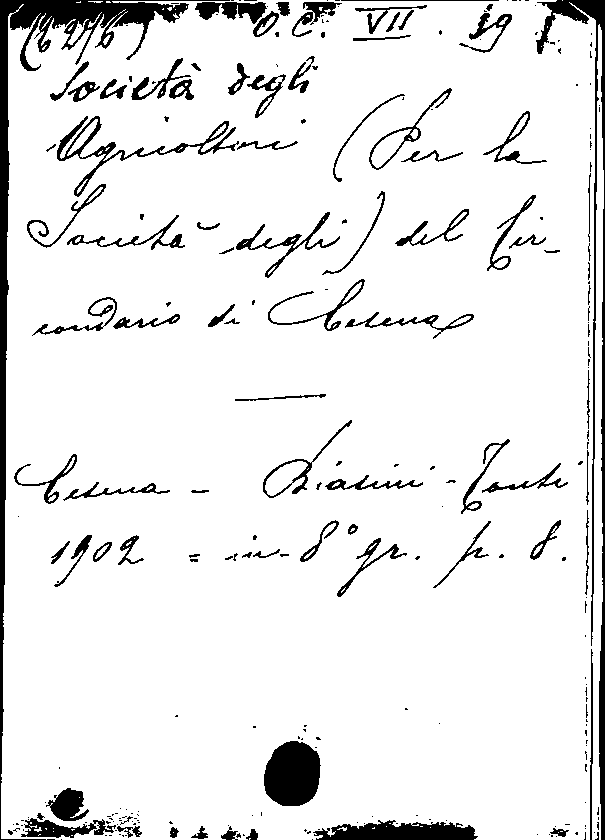 (6276) O.C. VII. 19
Società degli
Agricoltori (Per la
Società degli) del Cir-
condario di Cesena
Cesena - Biasini-Tonti
1902 = in-8° gr. p. 8.